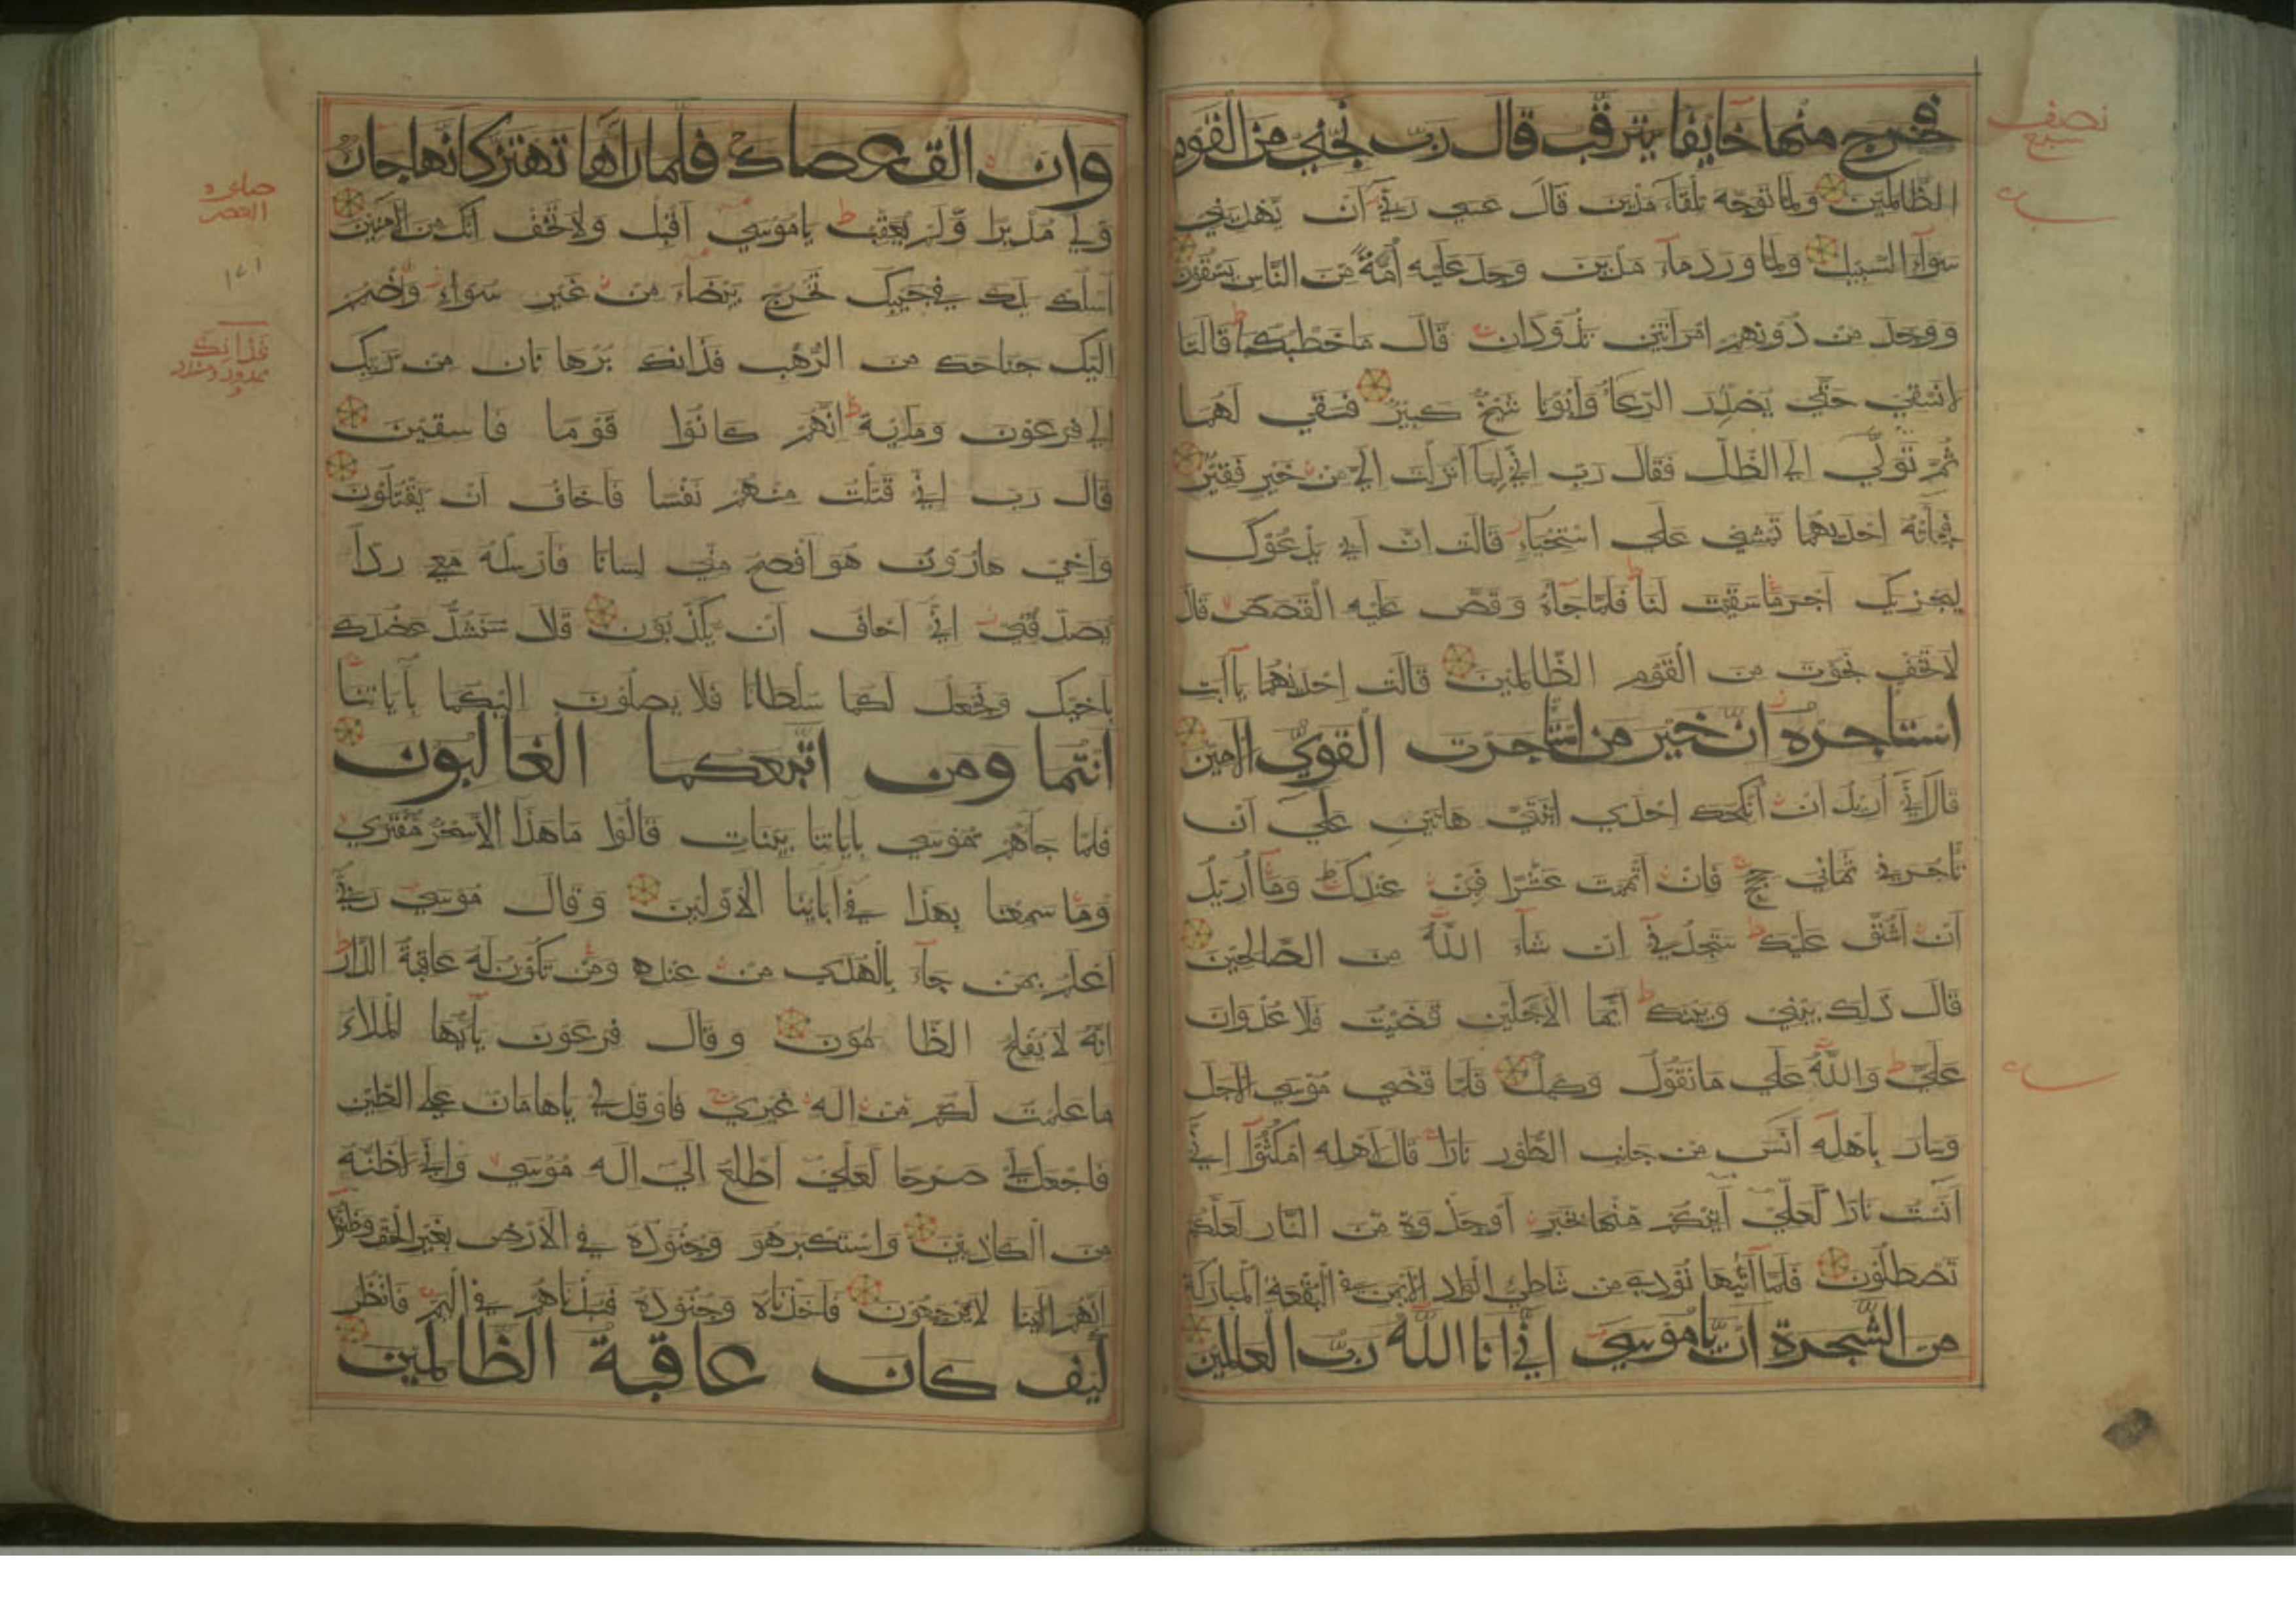 فخرج منها خايفا يترقب قال رب نجني من القوم
الظالمين ولما توجه تلقاء مدين قال عسي ربي أن يهديني
سوآء السبيل ولما ورد مآء مدين وجد عليه أمة من الناس يسقون
ووجد من دونهم امراتين تذودان قال ما خطبكما قالتا
لا نسقي حتي يصدر الرعاء وابونا شيخ كبير فسقي لهما
ثم تولي الي الظل فقال رب اني لما انزلت الي من خير فقير
فجآته احديهما تمشي علي استحياء قالت ان أبي يدعوك
ليجزيك اجر ما سقيت لنا فلما جآءه وقص عليه القصص قال
لا تخف نجوت من القوم الظالمين قالت احديهما يآ أبت
استاجره ان خير من استاجرت القوي الامين
قال اني أريد ان أنكحك احدي ابنتي هاتين علي أن
تاجرني ثماني حجج فان اتممت عشرا فمن عندك ومآ أريد
أن اشق عليك ستجدني ان شآء الله من الصالحين
قال ذلك بيني وبينك ايما الاجلين قضيت فلا عدوان
علي والله علي ما نقول وكيل فلما قضي موسي الاجل
وسار باهله آنس من جانب الطور نارا قال لاهله امكثوا اني
آنست نارا لعلي آتيكم منها بخبر أو جذوة من النار لعلكم
تصطلون فلما آتيها نودي من شاطئ الواد الايمن في البقعة المباركة
من الشجرة ان يا موسي اني أنا الله رب العالمين
نصف
سبع
وان الق عصاك فلما رآها تهتز كانها جان
ولي مدبرا ولم يعقب يا موسي أقبل ولا تخف انك من الآمنين
اسلك يدك في جيبك تخرج بيضاء من غير سوء واضمم
اليك جناحك من الرهب فذانك برهانان من ربك
الي فرعون وملايه انهم كانوا قوما فاسقين
قال رب اني قتلت منهم نفسا فاخاف أن يقتلون
وأخي هارون هو افصح مني لسانا فارسله معي ردأ
يصدقني اني أخاف أن يكذبون قال سنشد عضدك
باخيك ونجعل لكما سلطانا فلا يصلون اليكما بآياتنا
انتما ومن اتبعكما الغالبون
فلما جآءهم موسي بآياتنا بينات قالوا ما هذا الا سحر مفتري
وما سمعنا بهذا في آبائنا الاولين وقال موسي ربي
اعلم بمن جآء بالهدي من عنده ومن تكون له عاقبة الدار
انه لا يفلح الظالمون وقال فرعون يآ أيها الملاء
ما علمت لكم من اله غيري فاوقد لي يا هامان علي الطين
فاجعل لي صرحا لعلي أطلع الي اله موسي واني لاظنه
من الكاذبين واستكبر هو وجنوده في الارض بغير الحق وظنوا
انهم الينا لا يرجعون فاخذناه وجنوده فنبذناهم في اليم فانظر
كيف كان عاقبة الظالمين
فذانك